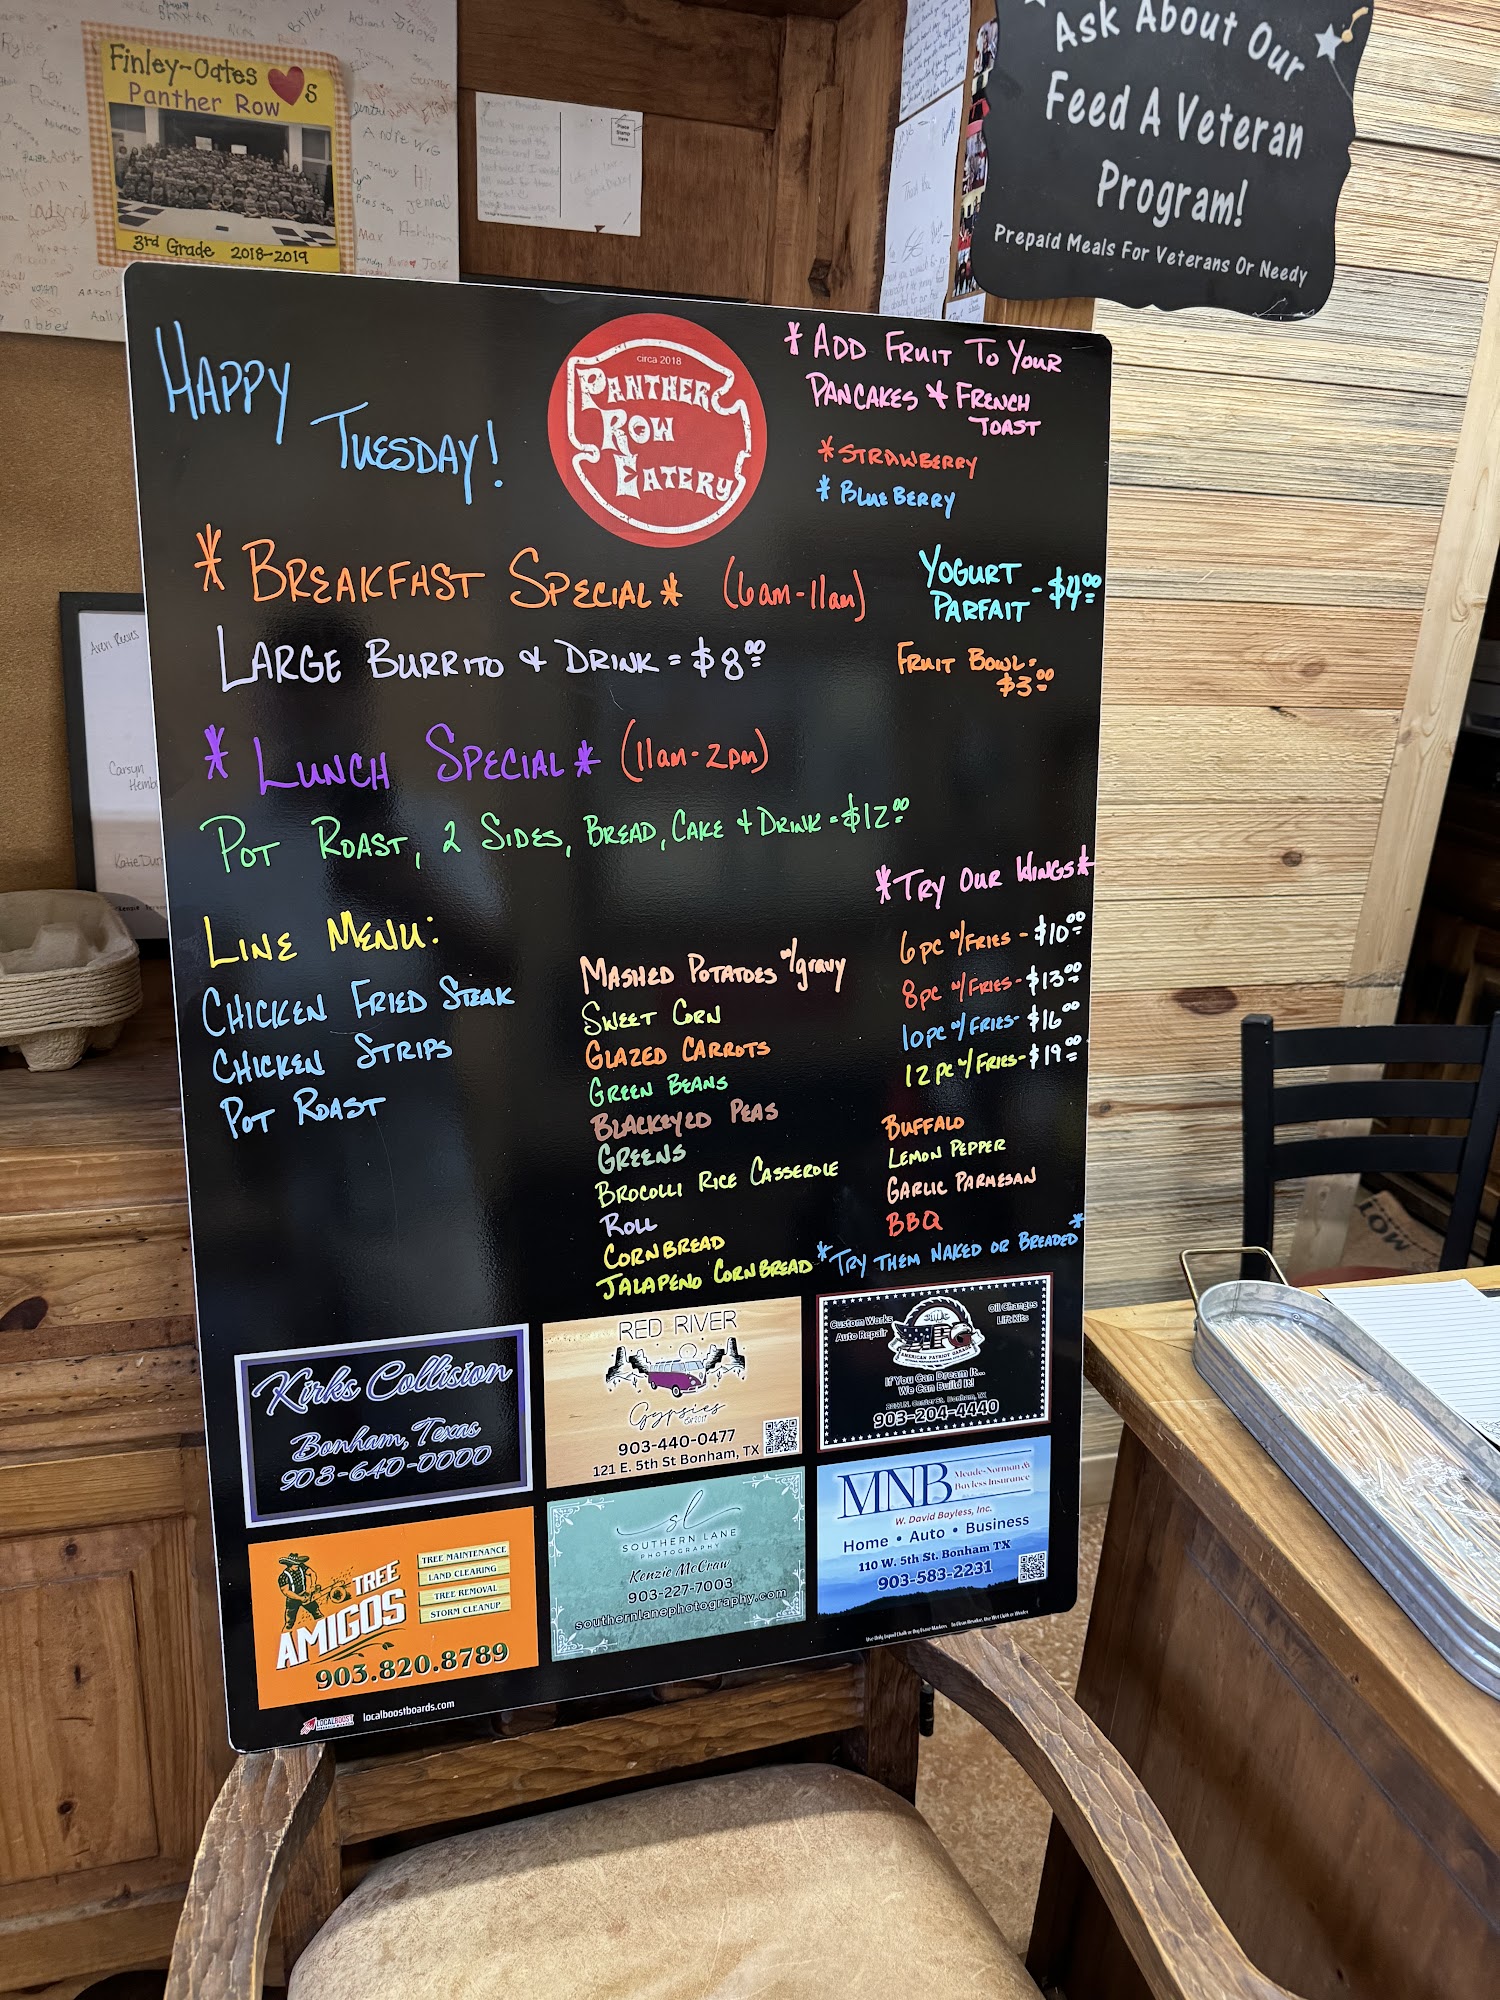 Finley-Oates ♥s
Panther Row
3rd Grade 2018-2019
Place
Stamp
Here
Ask About Our
Feed A Veteran
Program!
Prepaid Meals For Veterans Or Needy
Happy
Tuesday!
circa 2018
Panther
Row
Eatery
* Add Fruit To Your
Pancakes & French
Toast
* Strawberry
* Blueberry
* Breakfast Special * (6am-11am)
Large Burrito & Drink = $8.00
Yogurt
Parfait - $4.00
Fruit Bowl =
$3.00
* Lunch Special * (11am-2pm)
Pot Roast, 2 Sides, Bread, Cake & Drink = $12.00
Line Menu:
Chicken Fried Steak
Chicken Strips
Pot Roast
Mashed Potatoes w/gravy
Sweet Corn
Glazed Carrots
Green Beans
Blackeyed Peas
Greens
Brocolli Rice Casserole
Roll
Cornbread
Jalapeno Cornbread
*Try Our Wings*
6pc w/Fries - $10.00
8pc w/Fries - $13.00
10pc w/Fries - $16.00
12pc w/Fries - $19.00
Buffalo
Lemon Pepper
Garlic Parmesan
BBQ
*Try Them Naked or Breaded*
Kirks Collision
Bonham, Texas
903-640-0000
RED RIVER
Gypsies
903-440-0477
121 E. 5th St Bonham, TX
Custom Works
Auto Repair
Oil Changes
Lift Kits
AMERICAN PATRIOT GARAGE
If You Can Dream It...
We Can Build It!
903-204-4440
TREE
AMIGOS
TREE MAINTENANCE
LAND CLEARING
TREE REMOVAL
STORM CLEANUP
903.820.8789
sl
SOUTHERN LANE
PHOTOGRAPHY
Kenzie McCraw
903-227-7003
southernlanephotography.com
MNB
Meade-Norman &
Bayless Insurance
W. David Bayless, Inc.
Home • Auto • Business
110 W. 5th St. Bonham TX
903-583-2231
LOCALBOOST
localboostboards.com